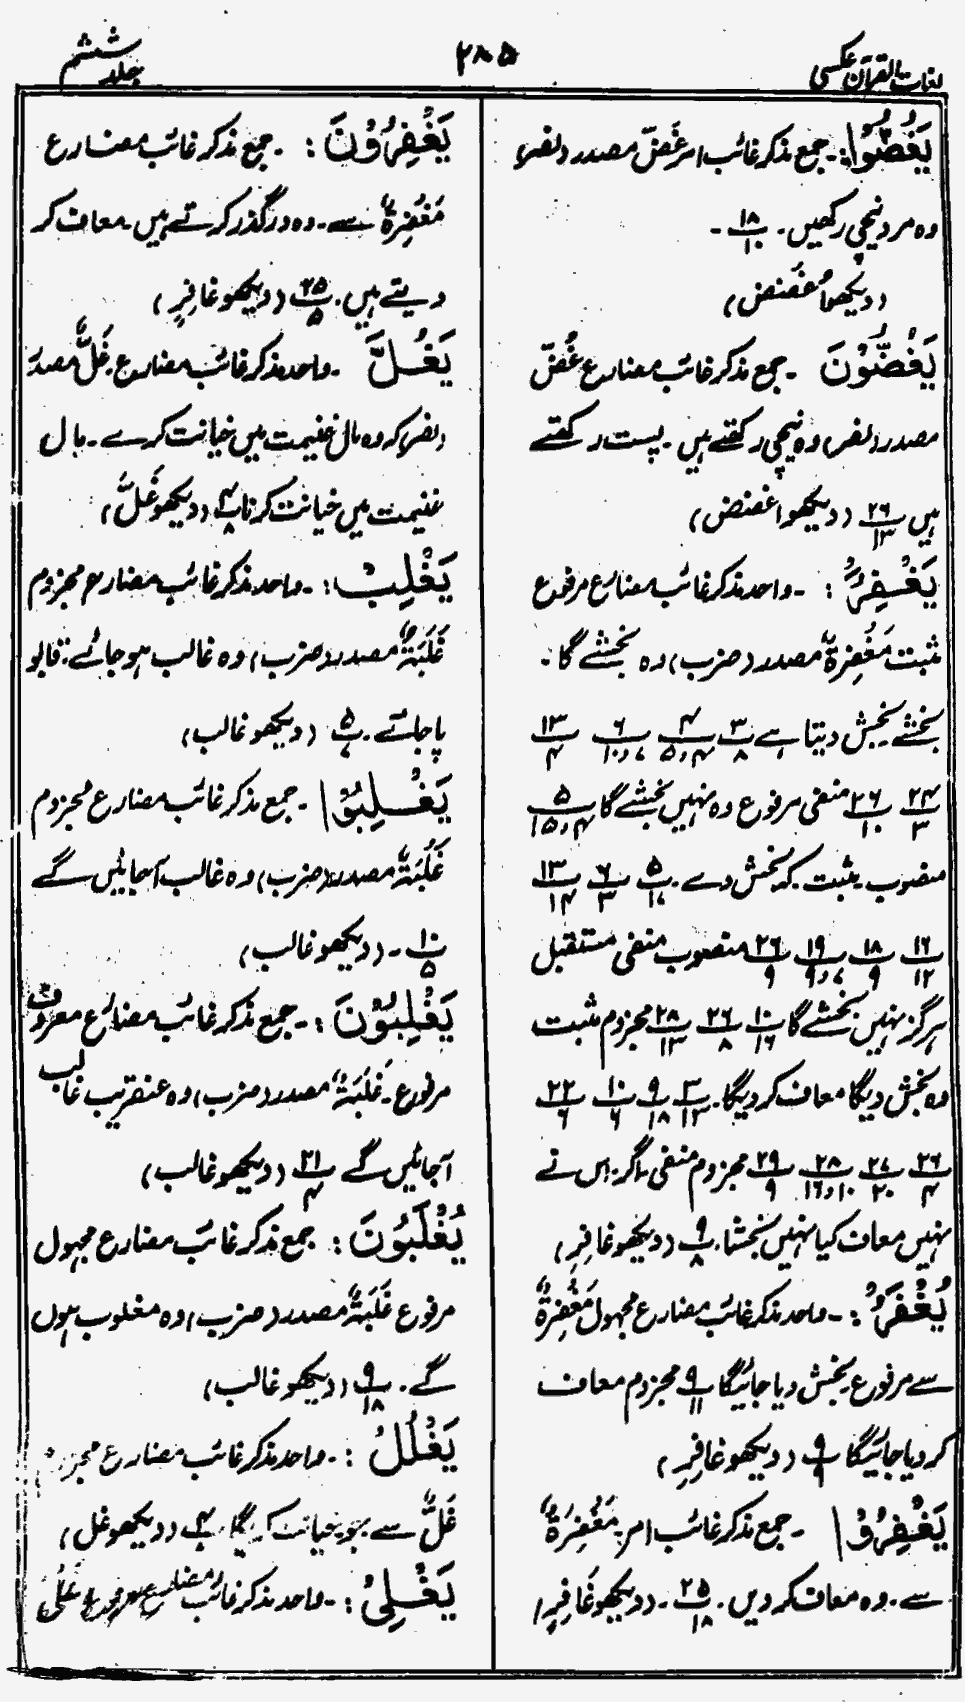 لغات القرآن عکسی
۲۸۵
جلد ششم
یَغُضُّوْا:۔ جمع مذکر غائب امر غَضّ مصدر (نصر)
وہ مرد نیچی رکھیں۔ ۱۸/۱۰ ۔
(دیکھو اُغضض)
یَغُضُّوْنَ ۔ جمع مذکر غائب مضارع غُضّ
مصدر (نصر) وہ نیچی رکھتے ہیں۔ پست رکھتے
ہیں ۲۶/۱۳ (دیکھو اغضض)
یَغْفِرُ: ۔ واحد مذکر غائب مضارع مرفوع
مثبت مَغْفِرَۃٌ مصدر (ضرب) وہ بخشے گا۔
بخشے بخش دیتا ہے ۳/۸ ۴/۴،۵ ۶/۷،۱۰ ۱۳/۴
۲۴/۳ ۲۶/۱۰ منفی مرفوع وہ نہیں بخشے گا ۵/۴،۱۵
منصوب مثبت کہ بخش دے۔ ۵/۱۷ ۶/۳ ۱۳/۱۴
۱۶/۱۲ ۱۸/۹ ۱۹/۷،۹ ۲۶/۹ منصوب منفی مستقبل
ہرگز نہیں بخشے گا ۱۰/۱۶ ۲۶/۸ ۲۸/۱۳ مجزوم مثبت
وہ بخش دیگا معاف کر دیگا۔ ۳/۱۲ ۹/۱۸ ۱۰/۶ ۲۲/۶
۲۶/۴ ۲۷/۲۰ ۲۸/۱۰،۱۶ ۲۹/۹ مجزوم منفی (اگر) اس نے
نہیں معاف کیا نہیں بخشا۔ ۹/۸ (دیکھو غافِرِ)
یُغْفَرُ:۔ واحد مذکر غائب مضارع مجہول مَغْفِرَۃٌ
سے مرفوع بخش دیا جائیگا ۹/۱۱ مجزوم معاف
کر دیا جائیگا (دیکھو غافِرِ)
یَغْفِرُوْا ۔ جمع مذکر غائب امر مَغْفِرَۃٌ
سے۔ وہ معاف کر دیں۔ ۲۵/۱۸ ۔ (دیکھو غَافِرِ)
یَغْفِرُوْنَ: ۔ جمع مذکر غائب مضارع
مَغْفِرَۃٌ سے۔ وہ درگذر کرتے ہیں۔ معاف کر
دیتے ہیں۔ ۲۵/۵ (دیکھو غافِرِ)
یَغُلَّ ۔ واحد مذکر غائب مضارع۔ غَلٌّ مصدر
(نصر) کہ وہ مال غنیمت میں خیانت کرے۔ مال
غنیمت میں خیانت کرنا ۴/۸ (دیکھو غَلَّ)
یَغْلِبْ:۔ واحد مذکر غائب مضارع مجزوم
غَلَبَۃٌ مصدر (ضرب) وہ غالب ہو جائے۔ قابو
پا جائے۔ ۵/۷ (دیکھو غالب)
یَغْلِبُوْا ۔ جمع مذکر غائب مضارع مجزوم
غَلَبَۃٌ مصدر (ضرب) وہ غالب آجائیں گے
۱۰/۵ ۔ (دیکھو غالب)
یَغْلِبُوْنَ:۔ جمع مذکر غائب مضارع معروف
مرفوع۔ غَلَبَۃٌ مصدر (ضرب) وہ عنقریب غالب
آجائیں گے ۲۱/۴ (دیکھو غالب)
یُغْلَبُوْنَ: جمع مذکر غائب مضارع مجہول
مرفوع غَلَبَۃٌ مصدر (ضرب) وہ مغلوب ہوں
گے۔ ۹/۱۸ (دیکھو غالب)
یَغْلُلْ:۔ واحد مذکر غائب مضارع مجزوم
غَلٌّ سے جو خیانت کریگا ۴/۸ (دیکھو غل)
یَغْلِیْ:۔ واحد مذکر غائب مضارع